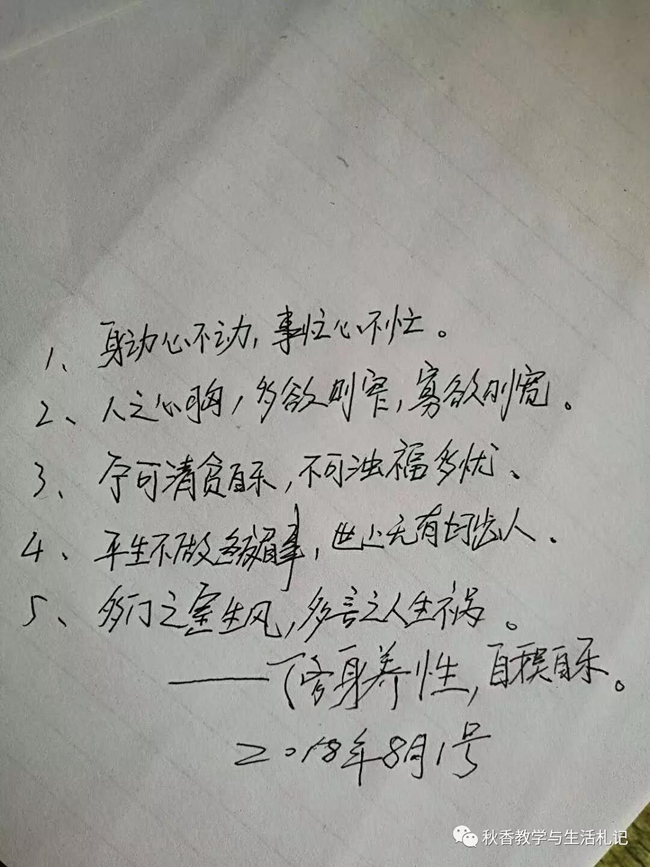 1、身动心不动,事忙心不忙。
2、人之心胸,多欲则窄,寡欲则宽。
3、宁可清贫自乐,不可浊福多忧。
4、平生不做皱眉事,世上无有切齿人.
5、多门之室生风,多言之人生祸。
——修身养性,自娱自乐。
2018年8月1号
秋香教学与生活札记